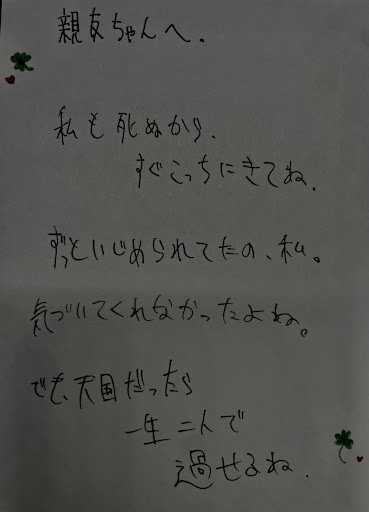 親友ちゃんへ.
私も死ぬから.
すぐこっちにきてね.
ずっといじめられてたの、私。
気づいてくれなかったよね。
でも、天国だったら
一生二人で
過せるね.